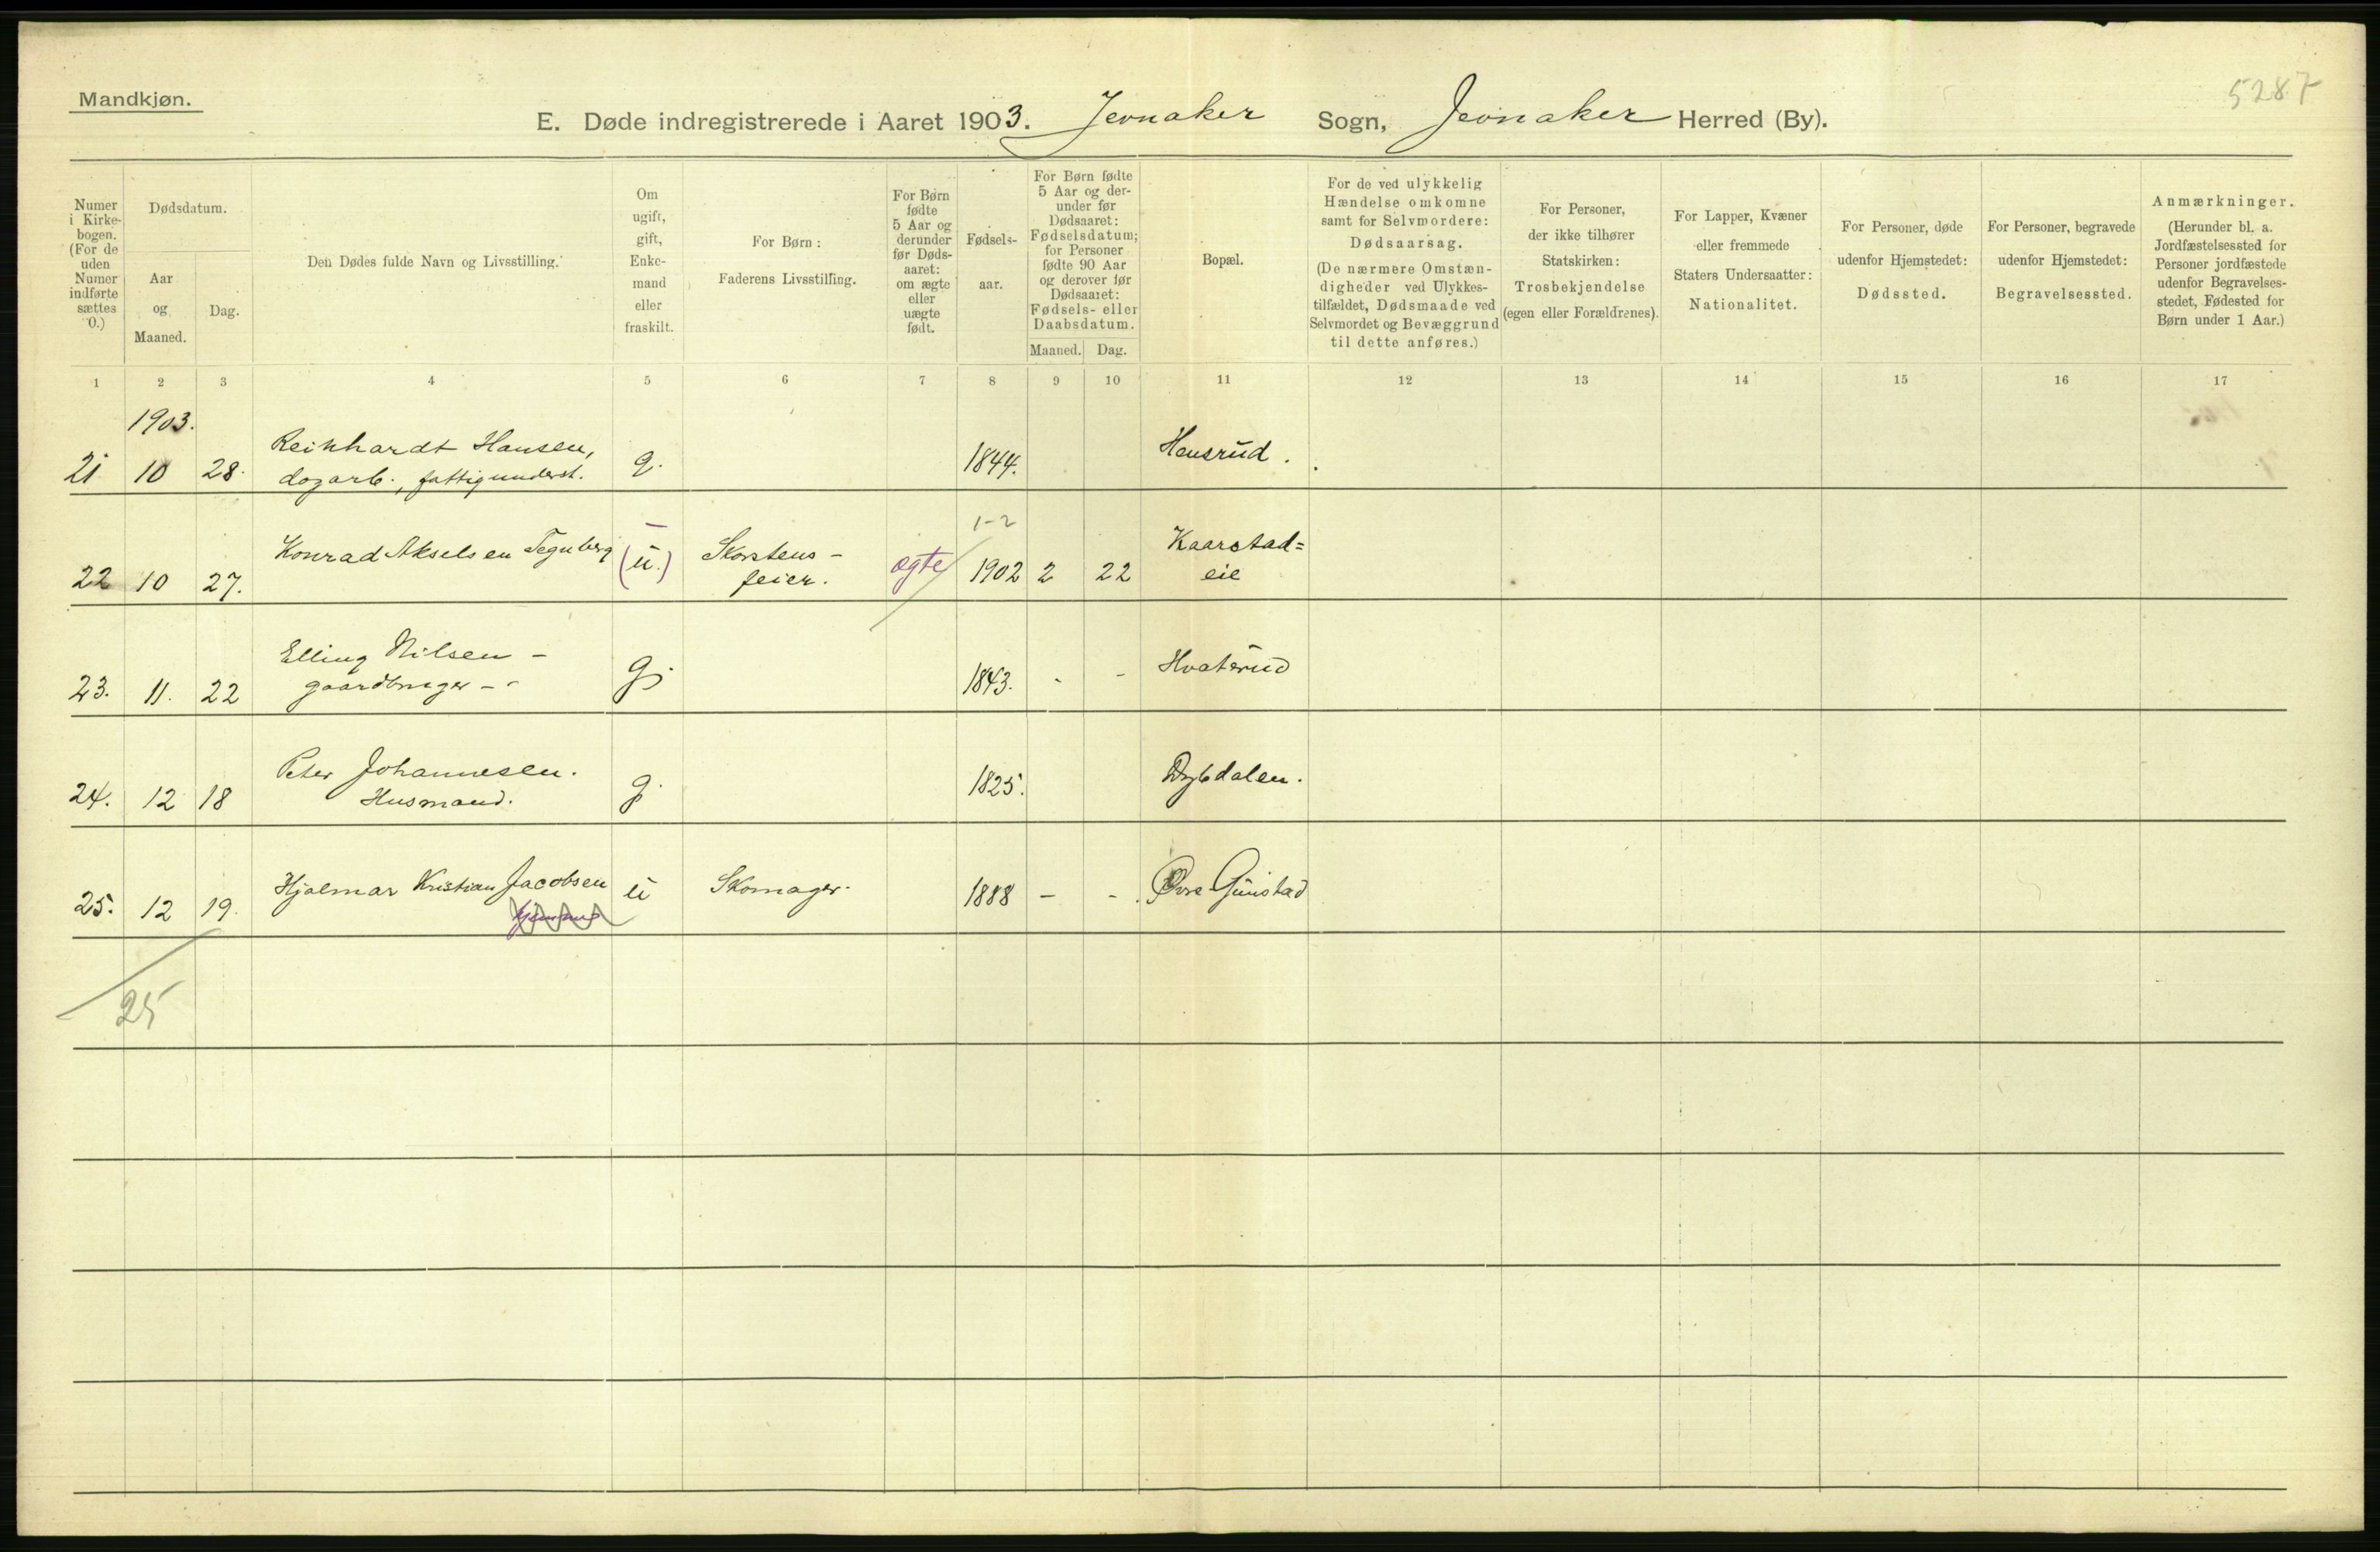 Mandkjøn.
5287
E. Døde indregistrerede i Aaret 1903. Jevnaker Sogn, Jevnaker Herred (By).
Numer i Kirkebogen. (For de uden Numer indførte sættes 0.)
Dødsdatum.
Aar og Maaned.
Dag.
Den Dødes fulde Navn og Livsstilling.
Om ugift, gift, Enkemand eller fraskilt.
For Børn:
Faderens Livsstilling.
For Børn fødte 5 Aar og derunder før Dødsaaret: om ægte eller uægte født.
Fødselsaar.
For Børn fødte 5 Aar og derunder før Dødsaaret: Fødselsdatum; for Personer fødte 90 Aar og derover før Dødsaaret: Fødsels- eller Daabsdatum.
Maaned. Dag.
Bopæl.
For de ved ulykkelig Hændelse omkomne samt for Selvmordere: Dødsaarsag.
(De nærmere Omstændigheder ved Ulykkestilfældet, Dødsmaade ved Selvmordet og Bevæggrund til dette anføres.)
For Personer, der ikke tilhører Statskirken: Trosbekjendelse (egen eller Forældrenes).
For Lapper, Kvæner eller fremmede Staters Undersaatter: Nationalitet.
For Personer, døde udenfor Hjemstedet: Dødssted.
For Personer, begravede udenfor Hjemstedet: Begravelsessted.
Anmærkninger.
(Herunder bl. a. Jordfæstelsessted for Personer jordfæstede udenfor Begravelsesstedet, Fødested for Børn under 1 Aar.)
1 2 3 4 5 6 7 8 9 10 11 12 13 14 15 16 17
1903.
21 10 28. Reinhardt Hansen, g. 1844. Hensrud.
dagarb., fattigunderst.
1-2
22 10 27. Konrad Akselsen Tegnberg (u.) Skorstens- ægte 1902 2 22 Kaarstad=
feier. eie
23. 11. 22 Elling Nilsen - g. 1843. - - Hvaterud
gaardbruger - -
24. 12 18 Peter Johannesen. g. 1825. Dybdalen.
Husmand.
25. 12 19. Hjalmar Kristian Jacobsen u Skomager. 1888 - - Øvre Guristad
25